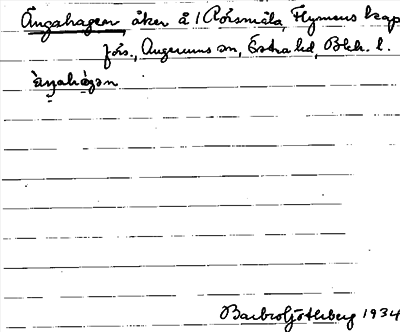 Ängahagen, åker å 1 Rörsmåla, Flymens kap
förs., Augerums sn, Östra hd, Blek. l.
ä̀ŋahàgən
Barbro Götherberg 1934